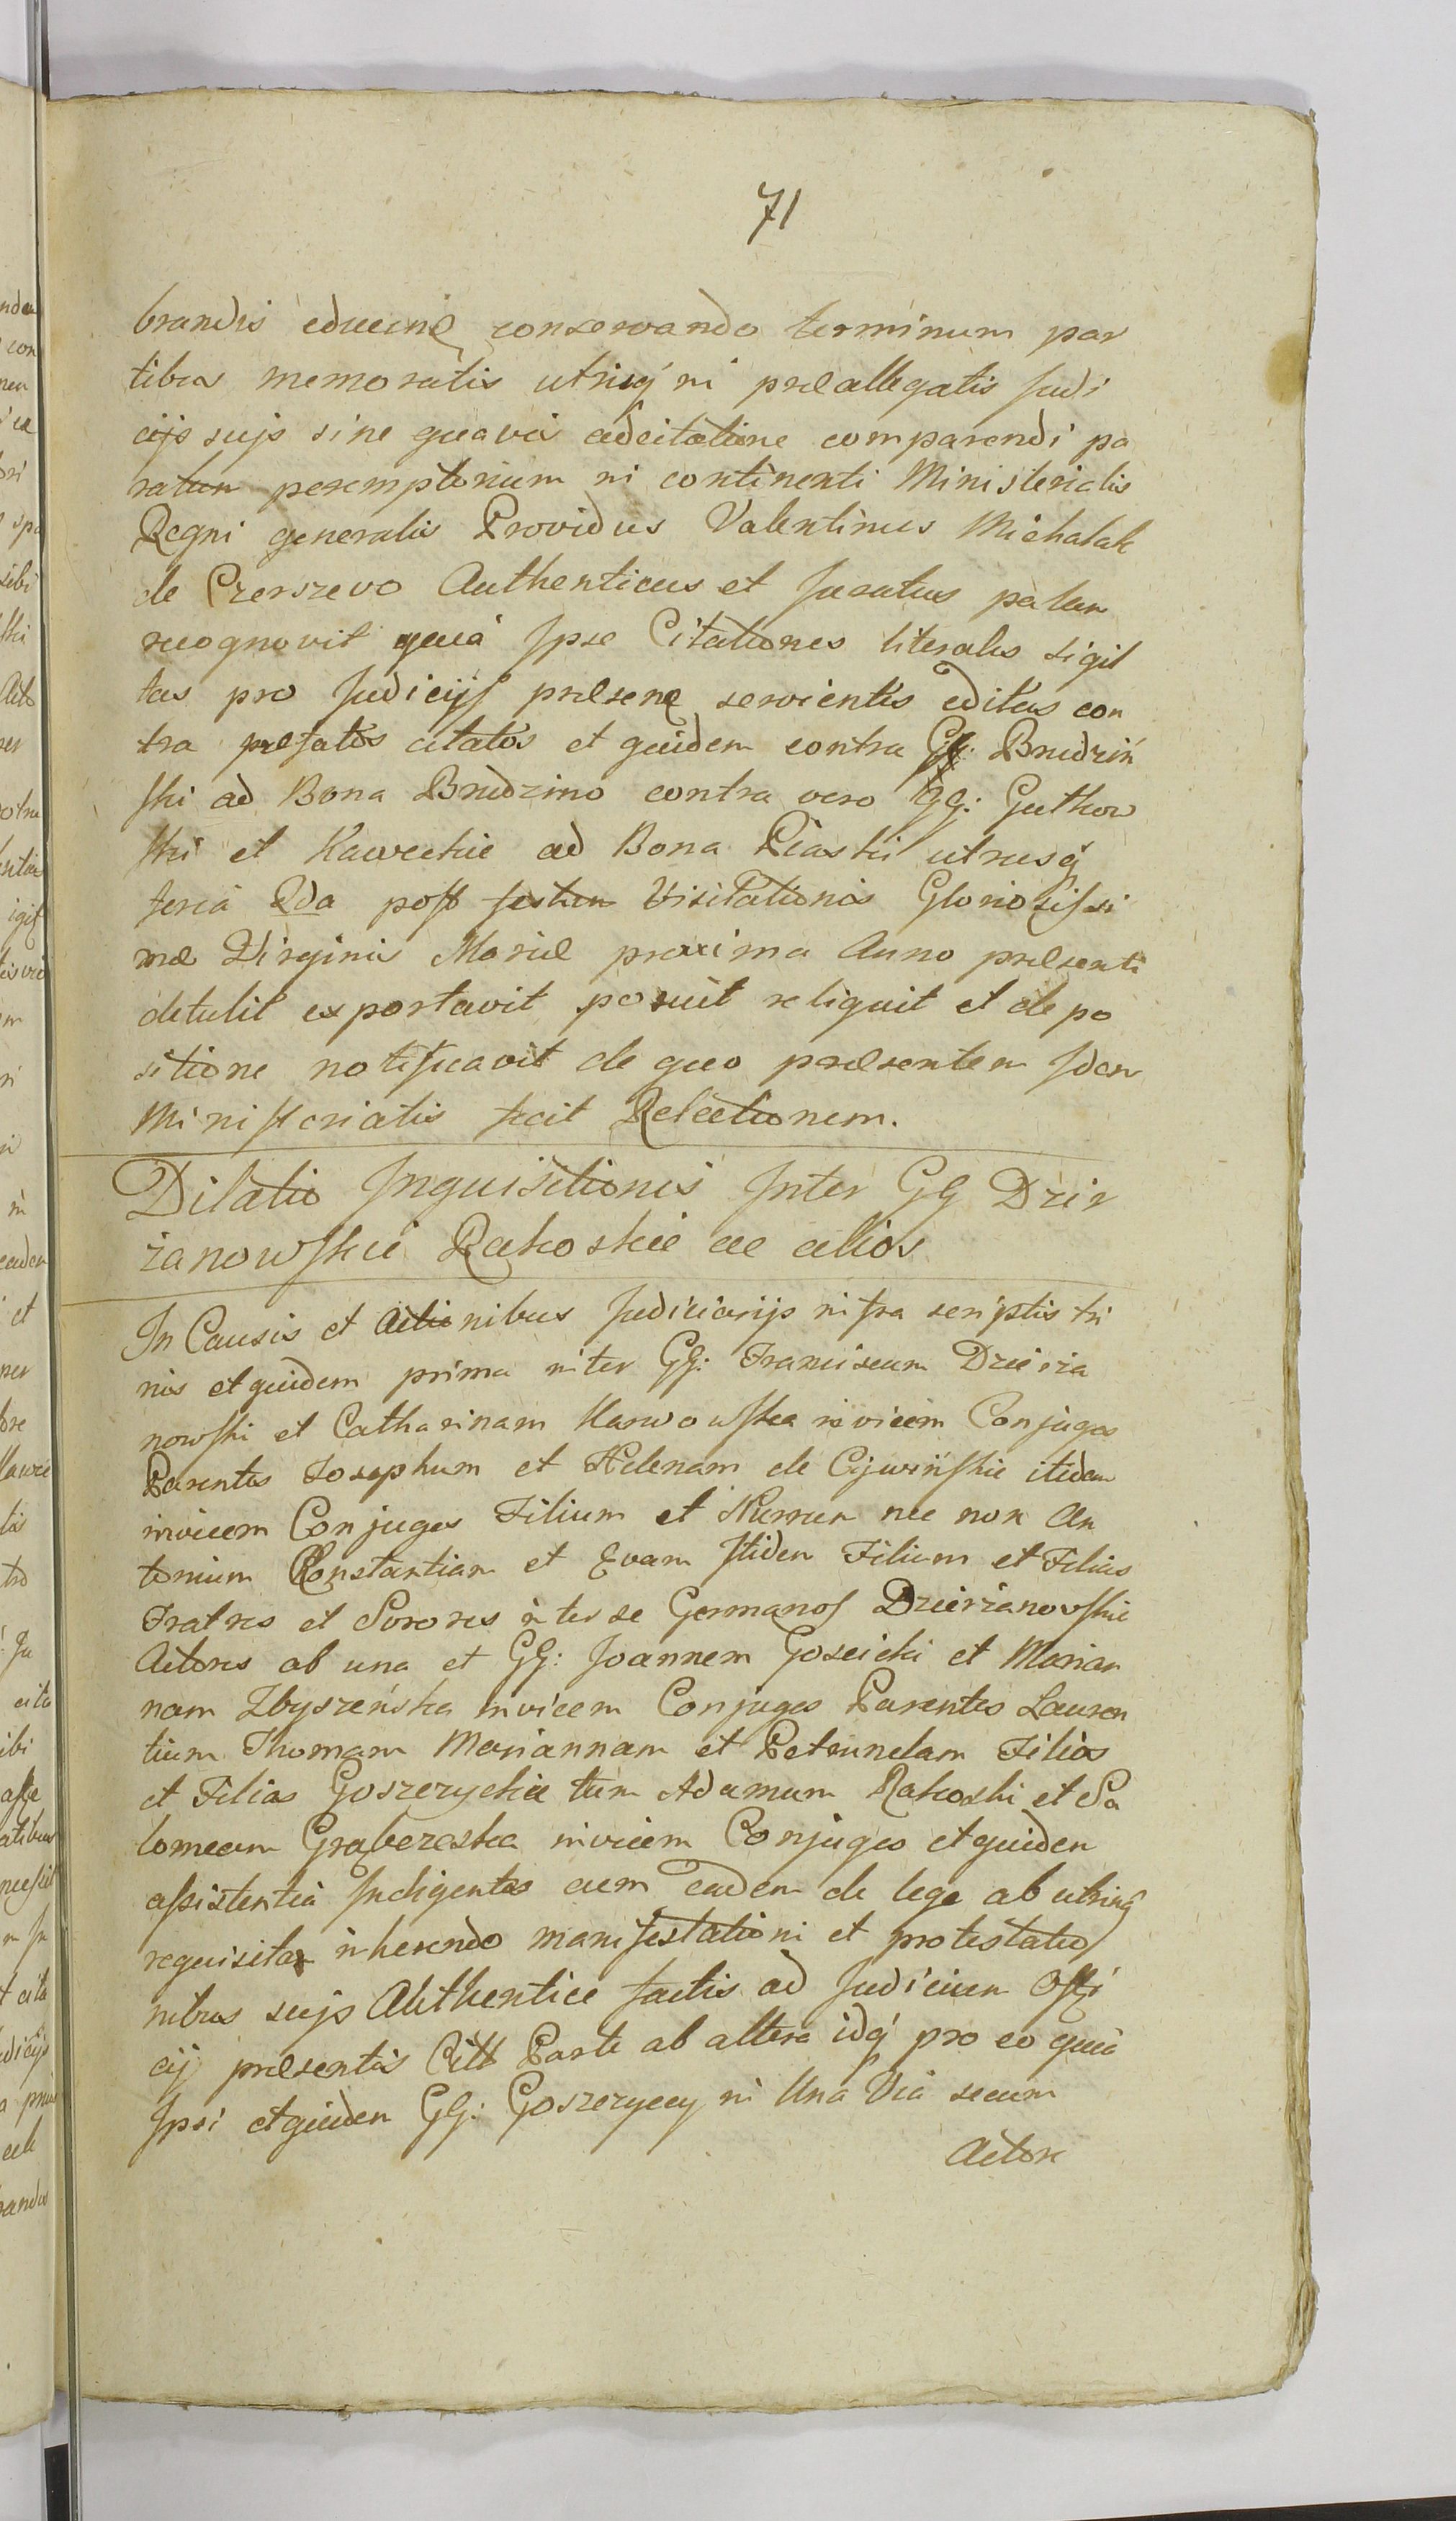 71
brandis educēnę conservando terminum par
tibus memoratis utriusq́ in præallegatis Judi
cijs suis sine quavis adcitatione comparendi pa
ratum peremptorium in continenti Ministerialis
Regni generalis Providus Valentinus Michalak
de Czerszevo Authenticus et Juratus palam
recognovit quia Ipse Citationes literales sigil
tas pro Judicijs præsenę servientes editas con
tra præfatos citatos et quidem contra GG. Brudziń
ski ad Bona Brudzino contra vero GG: Gutkow
ski et Kaweckie ad Bona Piaski utrusq́
feria 2da post festum Visitationis Gloriosissi
mæ Virginis Mariæ proxima Anno præsenti
detulit exportavit posuit reliquit et de po
sitione notificavit de quo præsentem Idem
Ministerialis fecit Relationem.
Dilatio Inquisitionis Inter GG Dzier
żanowskie Rakoskie ac alios
In Causis et Actionibus Judiciarijs infra scriptis tri
nis et quidem prima inter GG: Franciscum Dzierża
nowski et Catharinam Karwowska invicem Conjuges
Parentes Josephum et Helenam de Cywińskie itidem
invicem Conjuges Filium et Nurum nec non An
tonium Constantiam et Evam Itidem Filium et Filias
Fratres et Sorores inter se Germanos Dzierżanowskie
Actores ab una et GG: Joannem Goscicki et Marian
nam Zbyszeńska invicem Conjuges Parentes Lauren
tium Thomam Mariannam et Petrunelam Filios
et Filias Goszczyckie tum Adamum Rakoski et Sa
lomeam invicem Conjuges et quidem
assistentia Indigentes cum eadem de lege ab utrinq́
requisita inherendo manifestationi et protestatio
nibus suis Authentice factis ad Judicium Offi
cij præsentis Citt Parte ab altera idq́ pro eo quia
Ipsi et quidem GG: Goszczyccy in Una Via secum
Actore